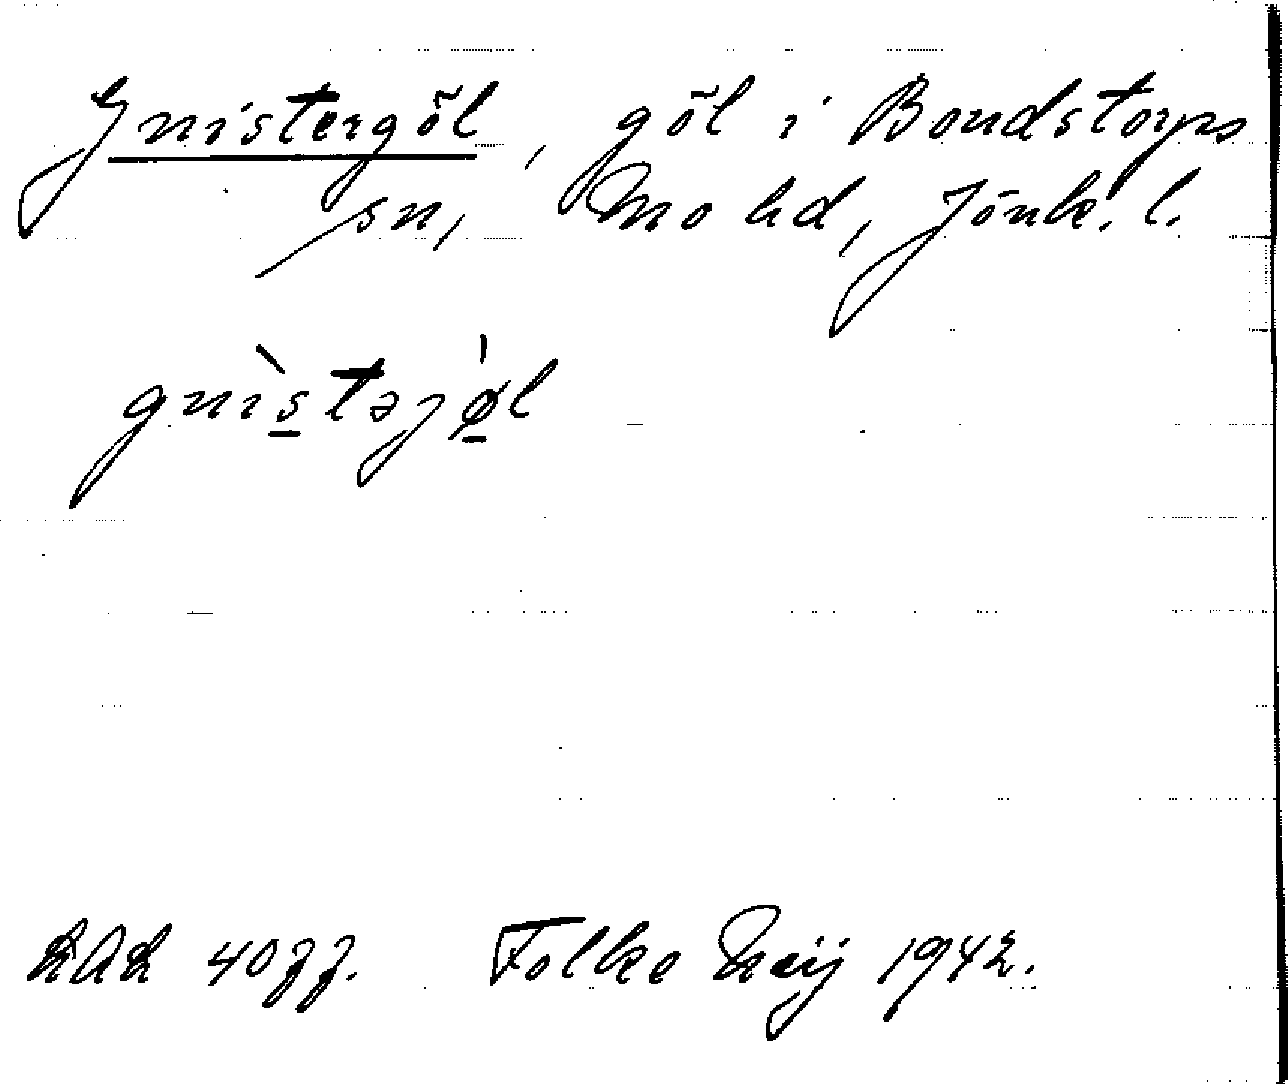 Gnistergöl, göl i Bondstorps
sn, Mo hd, Jönk. l.
gnìstəjø̀l
LAL 40ff. Folke Neij 1942.